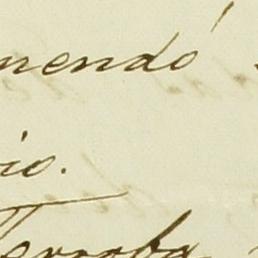 mendó
io.
Terroba